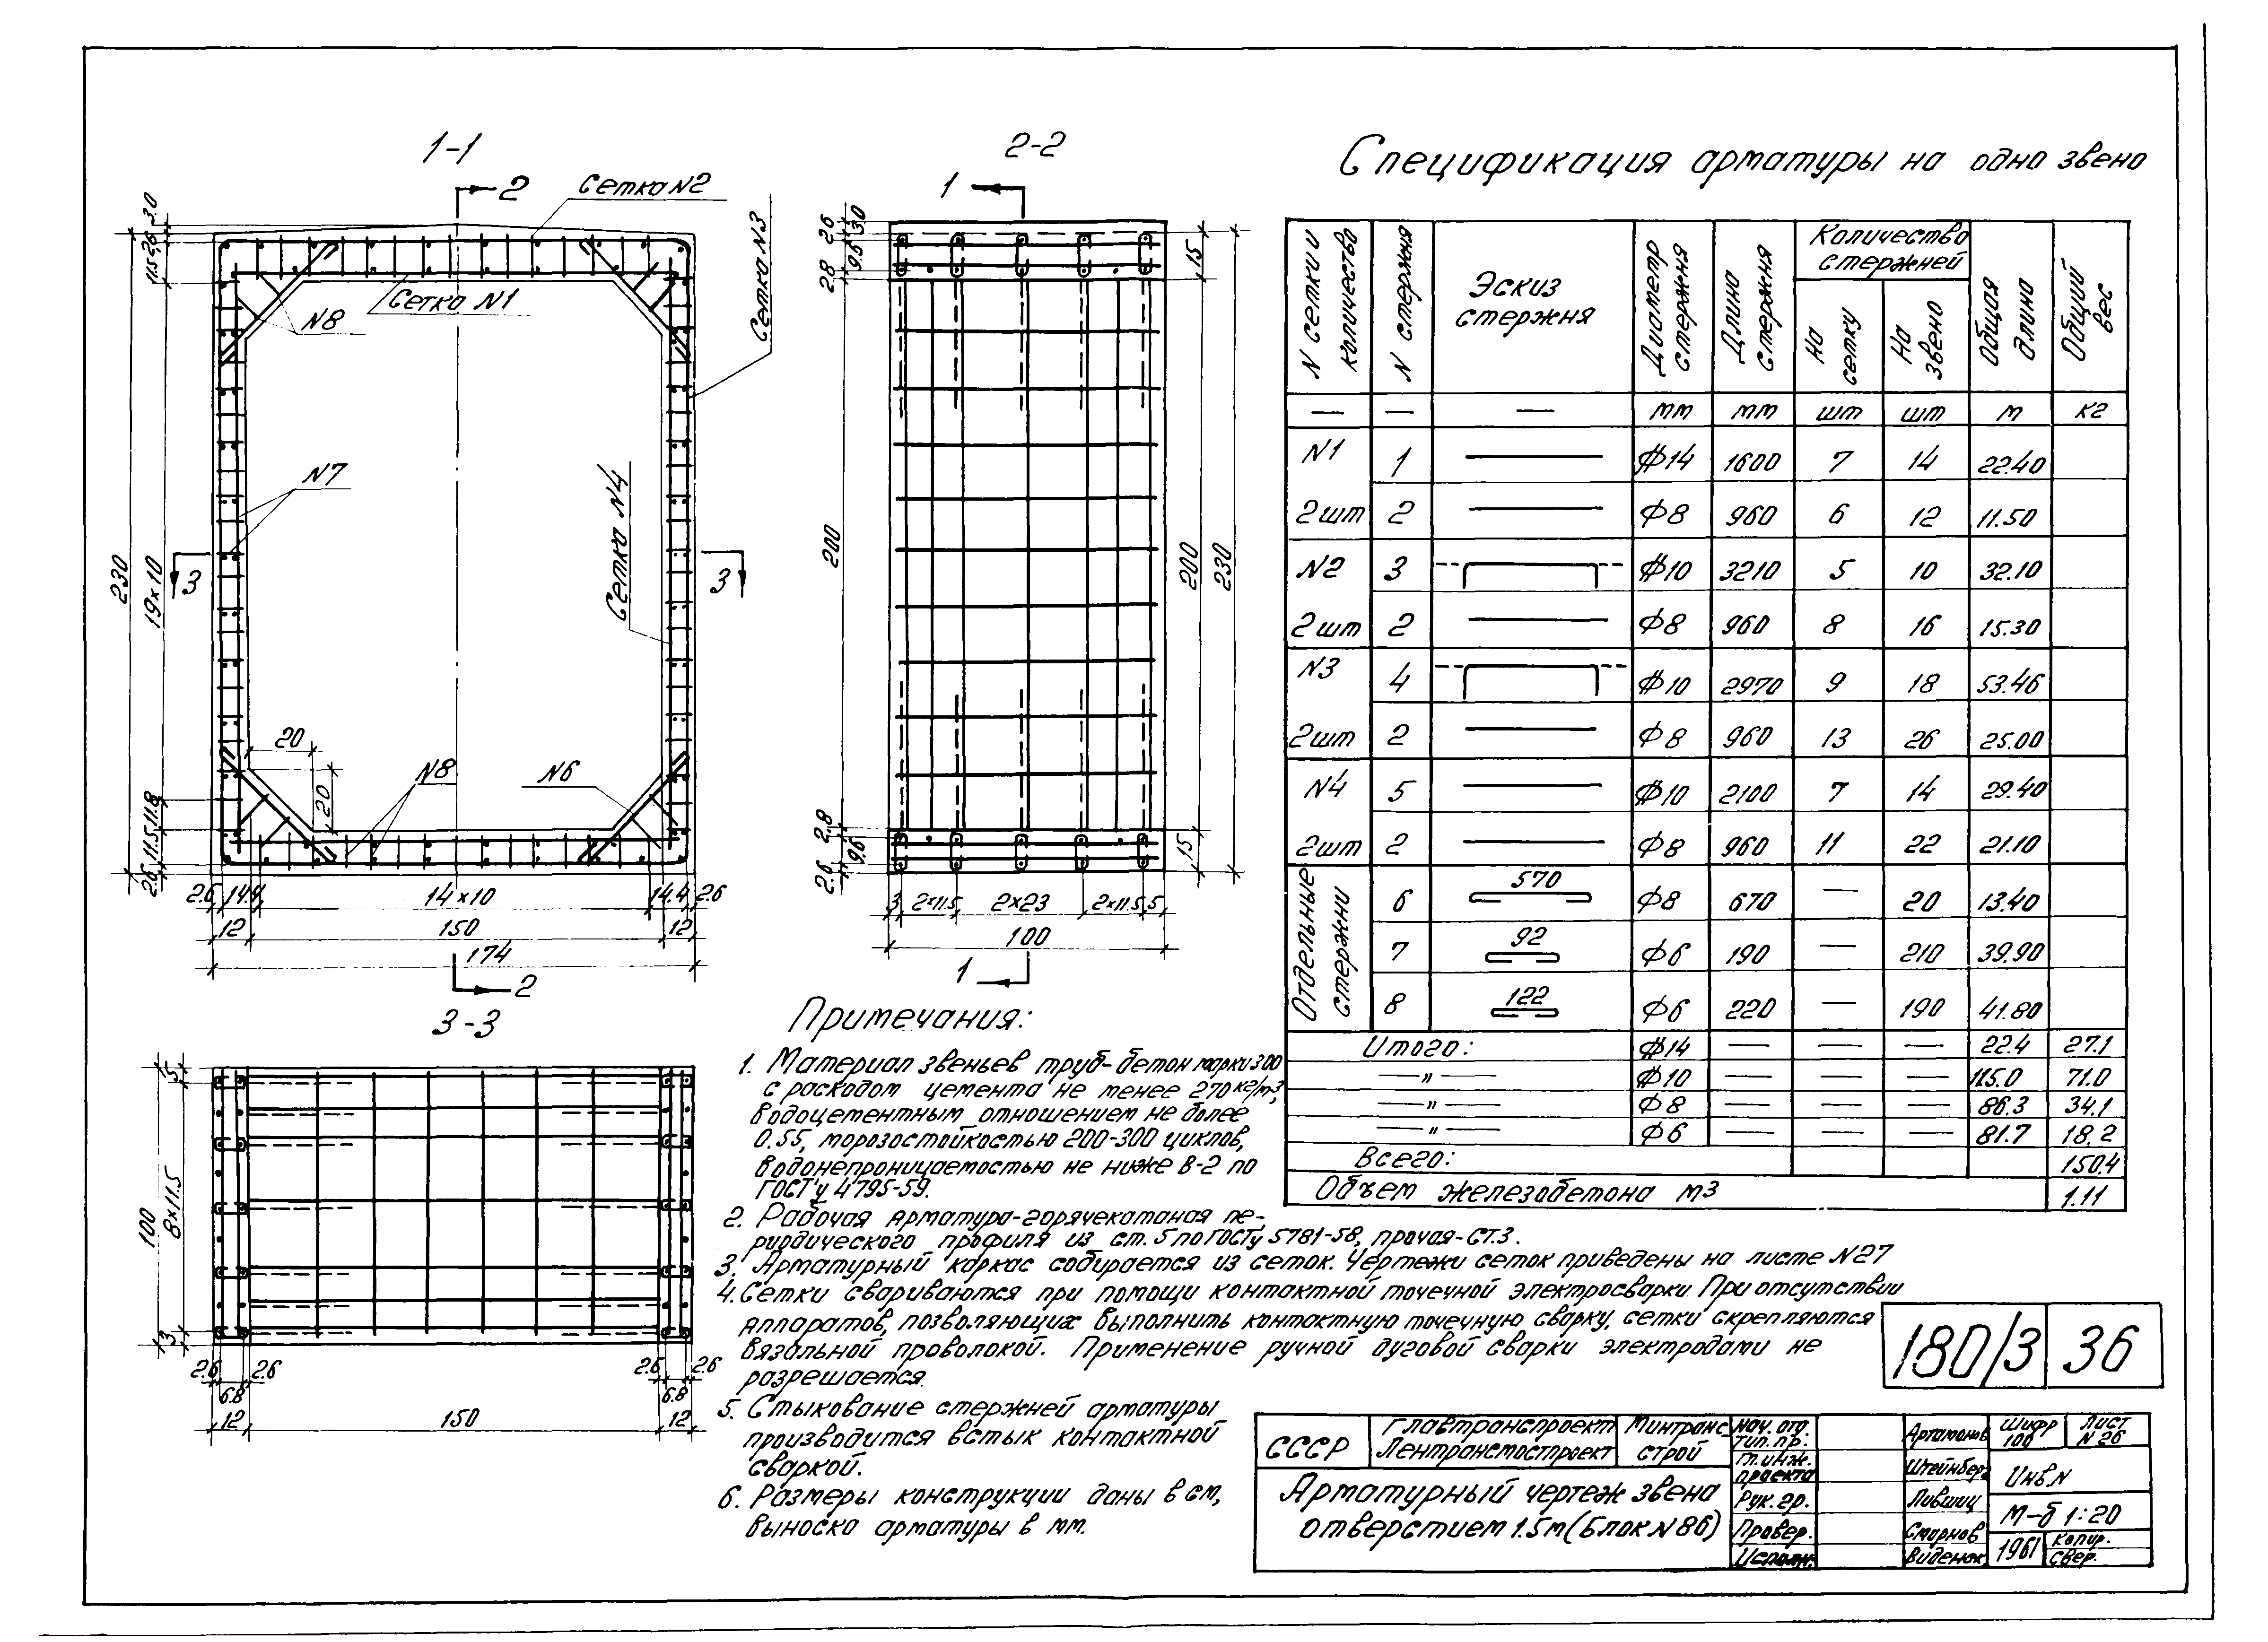 1-1
2
Сетка N2
3.0
2.6
11.5
Сетка N3
Сетка N1
N8
N7
Сетка N4
230
19×10
3
3
20
20
N8
N6
11.8
11.5
2.6
2.6 14.4 14×10 14.4 2.6
12 150 12
174
2
2-2
1
2.6 3.0
9.6
2.8
15
200
200
230
2.8
9.6
2.6
15
3 2×11.5 2×23 2×11.5 5
100
1
3-3
5
100
8×11.5
3
2.6 2.6 2.6 2.6
6.8 6.8
12 150 12
Спецификация арматуры на одно звено
N сетки и количество
N стержня
Эскиз стержня
Диаметр стержня
Длина стержня
Количество стержней
На сетку
На звено
Общая длина
Общий вес
— — — мм мм шт шт м кг
N1 1 Ф14 1600 7 14 22.40
2шт 2 Ф8 960 6 12 11.50
N2 3 Ф10 3210 5 10 32.10
2шт 2 Ф8 960 8 16 15.30
N3 4 Ф10 2970 9 18 53.46
2шт 2 Ф8 960 13 26 25.00
N4 5 Ф10 2100 7 14 29.40
2шт 2 Ф8 960 11 22 21.10
Отдельные стержни
6 570 Ф8 670 — 20 13.40
7 92 Ф6 190 — 210 39.90
8 122 Ф6 220 — 190 41.80
Итого: Ф14 — — — 22.4 27.1
—"— Ф10 — — — 115.0 71.0
—"— Ф8 — — — 86.3 34.1
—"— Ф6 — — — 81.7 18.2
Всего: 150.4
Объем железобетона м3 1.11
Примечания:
1. Материал звеньев труб-бетон марки 300
с расходом цемента не менее 270 кг/м3,
водоцементным отношением не более
0.55, морозостойкостью 200-300 циклов,
водонепроницаемостью не ниже В-2 по
ГОСТ'у 4795-59.
2. Рабочая арматура-горячекатаная пе-
риодического профиля из ст. 5 по ГОСТу 5781-58, прочая-Ст.3.
3. Арматурный каркас собирается из сеток. Чертежи сеток приведены на листе N27
4. Сетки свариваются при помощи контактной точечной электросварки. При отсутствии
аппаратов, позволяющих выполнить контактную точечную сварку, сетки скрепляются
вязальной проволокой. Применение ручной дуговой сварки электродами не
разрешается.
5. Стыкование стержней арматуры
производится встык контактной
сваркой.
6. Размеры конструкции даны в см,
выноска арматуры в мм.
180/3 36
СССР
Главтранспроект
Лентрансмостпроект
Минтранс-
строй
Арматурный чертеж звена
отверстием 1.5м (Блок N 86)
Нач. отд.
Тип. пр. Артамонов
Гл. инж.
проекта Штейнберг
Рук. гр. Лившиц
Провер. Смирнов
Исполн. Виденок
Шифр
100
Лист
N 26
Инв. N
М-б 1:20
1961
Копир.
Свер.